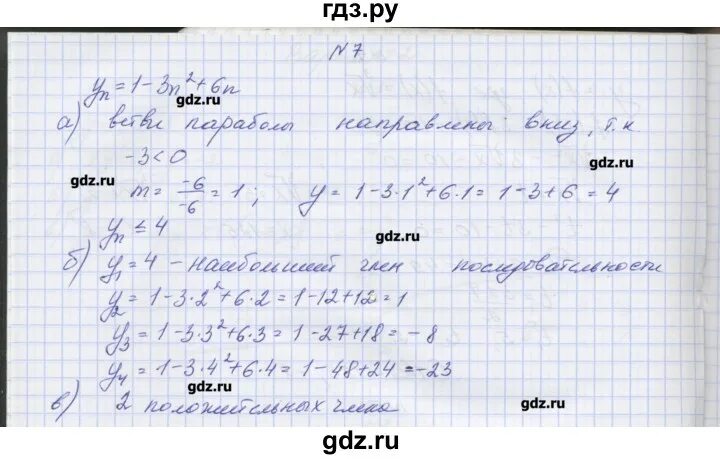 гдз.ру
N 7
yₙ = 1 - 3n² + 6n
gdz.ru
а) ветви параболы направлены вниз, т.к
-3 < 0
gdz.ru
gdz.ru
m = -6/-6 = 1; y = 1 - 3·1² + 6·1 = 1 - 3 + 6 = 4
yₙ ≤ 4
gdz.ru
б) y₁ = 4 - наибольший член последовательности
y₂ = 1 - 3·2² + 6·2 = 1 - 12 + 12 = 1
y₃ = 1 - 3·3² + 6·3 = 1 - 27 + 18 = -8
y₄ = 1 - 3·4² + 6·4 = 1 - 48 + 24 = -23
gdz.ru
gdz.ru
в) 2 положительных члена
gdz.ru